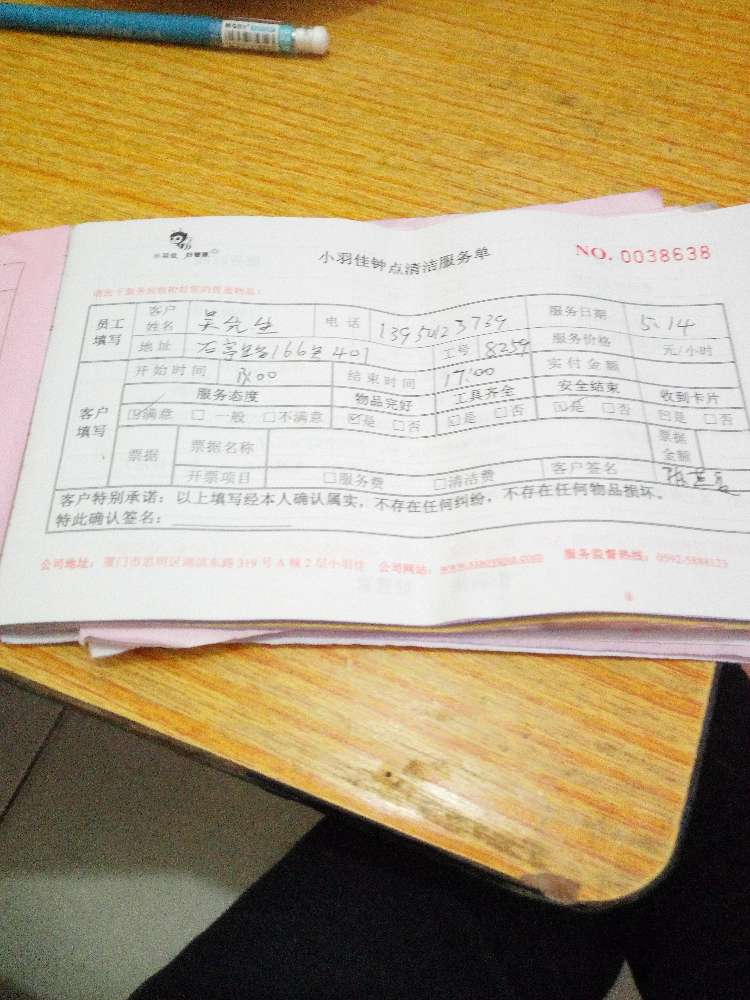 小羽佳钟点清洁服务单
NO. 0038638
员工填写 客户姓名 吴先生 电话 服务日期 5.14
地址 166 401 工号 8259 服务价格 元/小时
开始时间 结束时间 17:00 实付金额
客户填写 服务态度 物品完好 工具齐全 安全结束 收到卡片
☑满意 □一般 □不满意 ☑是 □否 ☑是 □否 ☑是 □否 ☑是 □否
票据 票据名称 票据金额
开票项目 □服务费 □清洁费 客户签名
客户特别承诺：以上填写经本人确认属实，不存在任何纠纷，不存在任何物品损坏。
特此确认签名：
公司地址：厦门市思明区湖滨东路319号A幢2层小羽佳 公司网站： 服务监督热线：0592-5888123